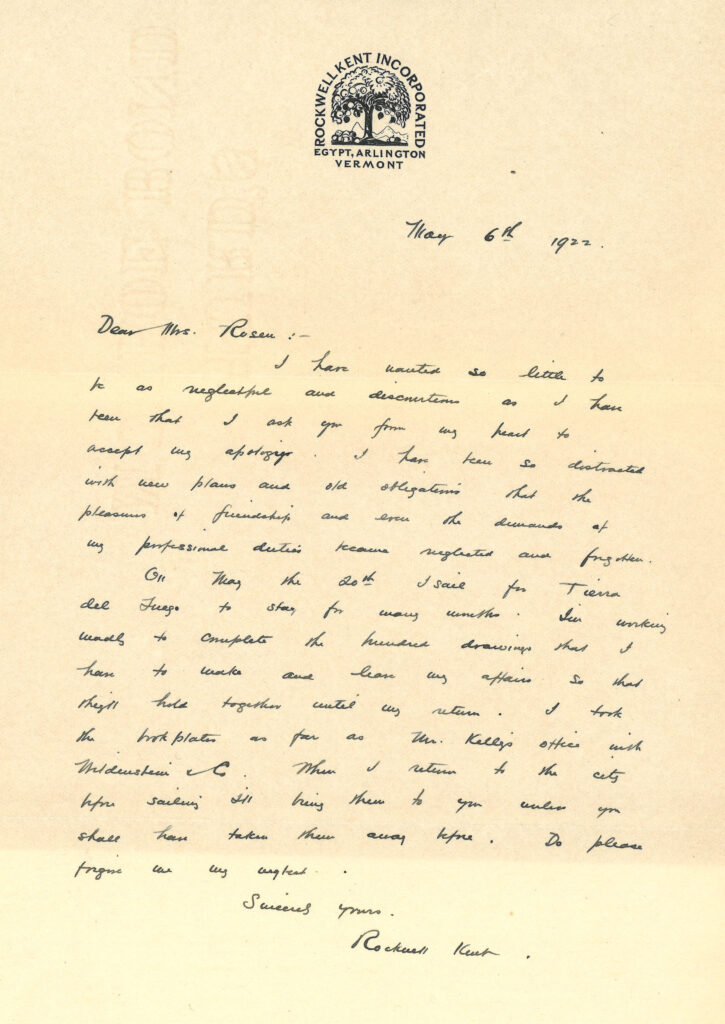 ROCKWELL KENT INCORPORATED
EGYPT, ARLINGTON
VERMONT
May 6th 1922.
Dear Mrs. Rosen :-
I have wanted so little to
be as neglectful and discourteous as I have
been that I ask you from my heart to
accept my apology. I have been so distracted
with new plans and old obligations that the
pleasures of friendship and even the demands of
my professional duties became neglected and forgotten.
On May the 20th I sail for Tierra
del Fuego to stay for many months. I'm working
madly to complete the hundred drawings that I
have to make and leave my affairs so that
they'll hold together until my return. I took
the bookplates as far as Mr. Kelly's office with
Wildenstein & Co. When I return to the city
before sailing I'll bring them to you unless you
shall have taken them away before. Do please
forgive me my neglect.
Sincerely yours.
Rockwell Kent.